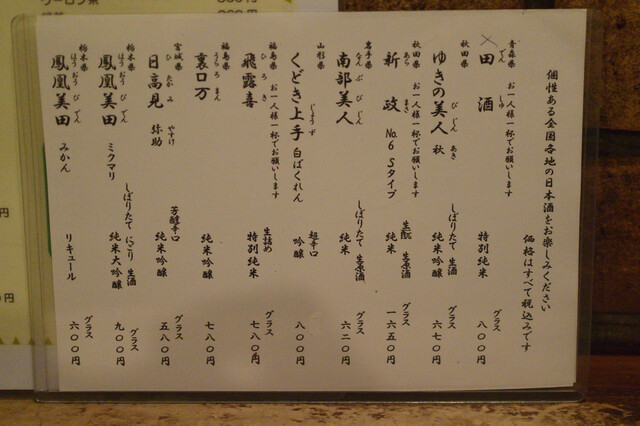 個性ある全国各地の日本酒をお楽しみください
価格はすべて税込みです
青森県 お一人様一杯でお願いします
田酒 特別純米 グラス 八〇〇円
でん しゅ
秋田県
ゆきの美人 秋 しぼりたて 生酒 純米吟醸 グラス 六七〇円
び じん あき
秋田県 お一人様一杯でお願いします
新政 No.6 Sタイプ 生酛 生原酒 純米 グラス 一六五〇円
あら まさ
岩手県
南部美人 しぼりたて 生原酒 純米 グラス 六二〇円
なん ぶ び じん
山形県
くどき上手 白ばくれん 超辛口 吟醸 八〇〇円
じょう ず
福島県 お一人様一杯でお願いします
飛露喜 生詰め 特別純米 グラス 七八〇円
ひ ろ き
福島県
裏ロ万 純米吟醸 七八〇円
うら ろ まん
宮城県
日高見 弥助 芳醇辛口 純米吟醸 グラス 五八〇円
ひ たか み やすけ
栃木県
鳳凰美田 ミクマリ しぼりたて にごり 生酒 純米大吟醸 グラス 九〇〇円
ほう おう び でん
栃木県
鳳凰美田 みかん リキュール グラス 六〇〇円
ほう おう び でん